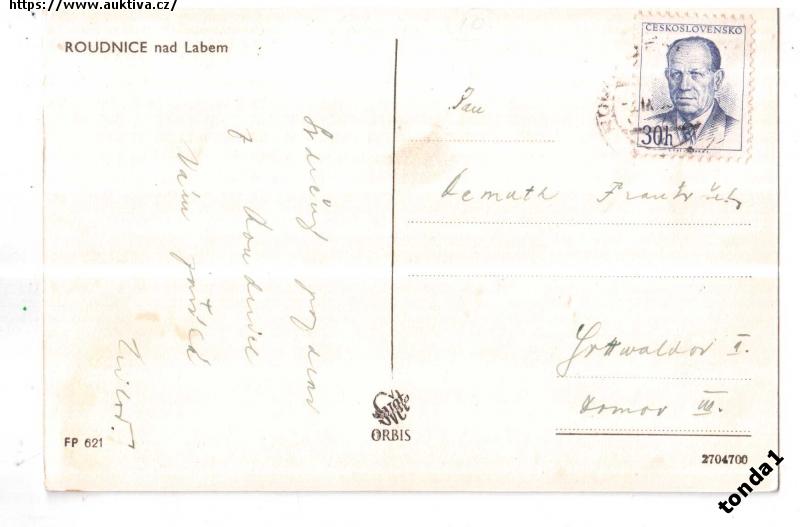 https://www.auktiva.cz/
ROUDNICE nad Labem
ČESKOSLOVENSKO
30h
Pan
Demuth František
Gottwaldov I.
Domov III.
Srdečný pozdrav
z Roudnice
Vám
ORBIS
FP 621
2704700
tonda1